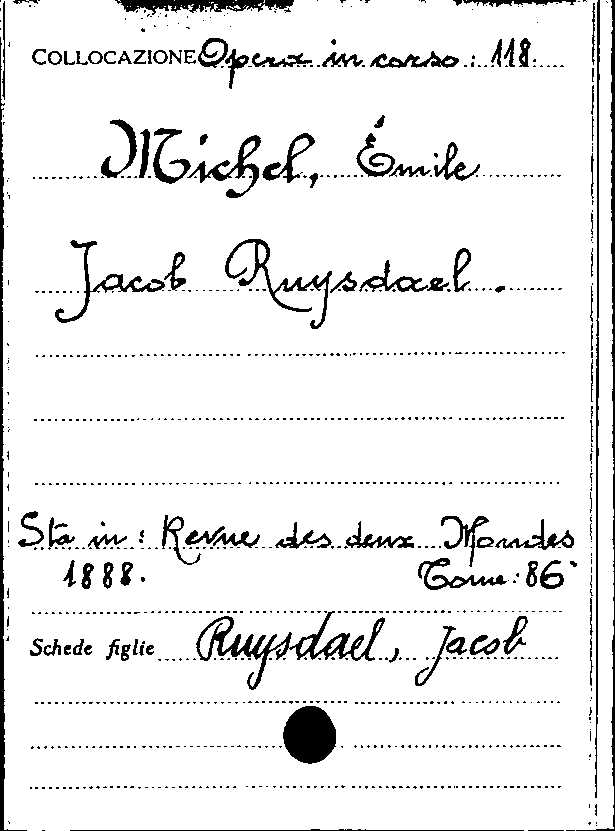 COLLOCAZIONE Opera in corso: 118.
Michel, Émile
Jacob Ruysdael.
Sta in: Revue des deux Mondes
1888. Tome: 86°
Schede figlie Ruysdael, Jacob